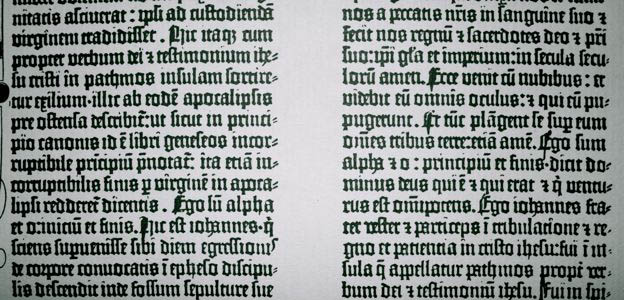 nitatis asciuerat : ipsi ad custodiendā
virginem tradidisset . Hic itaq̄ cum
propter verbum dei ⁊ testimonium ihe-
su cristi in pathmos insulam sortire-
tur exilium·illic ab eodē apocalipsis
pre ostensa describit̄:ut sicut in princi-
pio canonis id ē libri geneseos incor-
ruptibile prīcipiū p̄notat̄: ita etiā in-
corruptibilis finis p̱ virginē in apoca-
lipsi redderet̄ dicentis . Ego sū alpha
et o:iniciū et finis. Hic est iohannes·q̄
sciens supuenisse sibi diem egressionis
de corpore conuocatis ī epheso discipu-
lis descendit inde fossum sepulture sue
nos a peccatis nr̄is in sanguine suo ⁊
fecit nos regnū ⁊ sacerdotes deo ⁊ pr̄i
suo:ipi gl̄a et imperium:in secula secu-
lorū amen. Ecce venit cū nubibus : et
videbit eū omnis oculus:⁊ qui eū pu-
pugerunt. Et tūc plāgent se sup̱ eum
om̄es tribus terre:etiā amē. Ego sum
alpha ⁊ o : principiū et finis·dicit do-
minus deus qui ē ⁊ qui erat ⁊ q̄ ventu-
rus est om̄ipotens. Ego iohannes fra-
ter vester ⁊ particeps ī tribulatione ⁊ re-
gno et patientia in cristo ihesu:fui ī in-
sula q̄ appellatur pathmos propt̄ ver-
bum dei ⁊ testimoniū ihesu. Fui in spi-